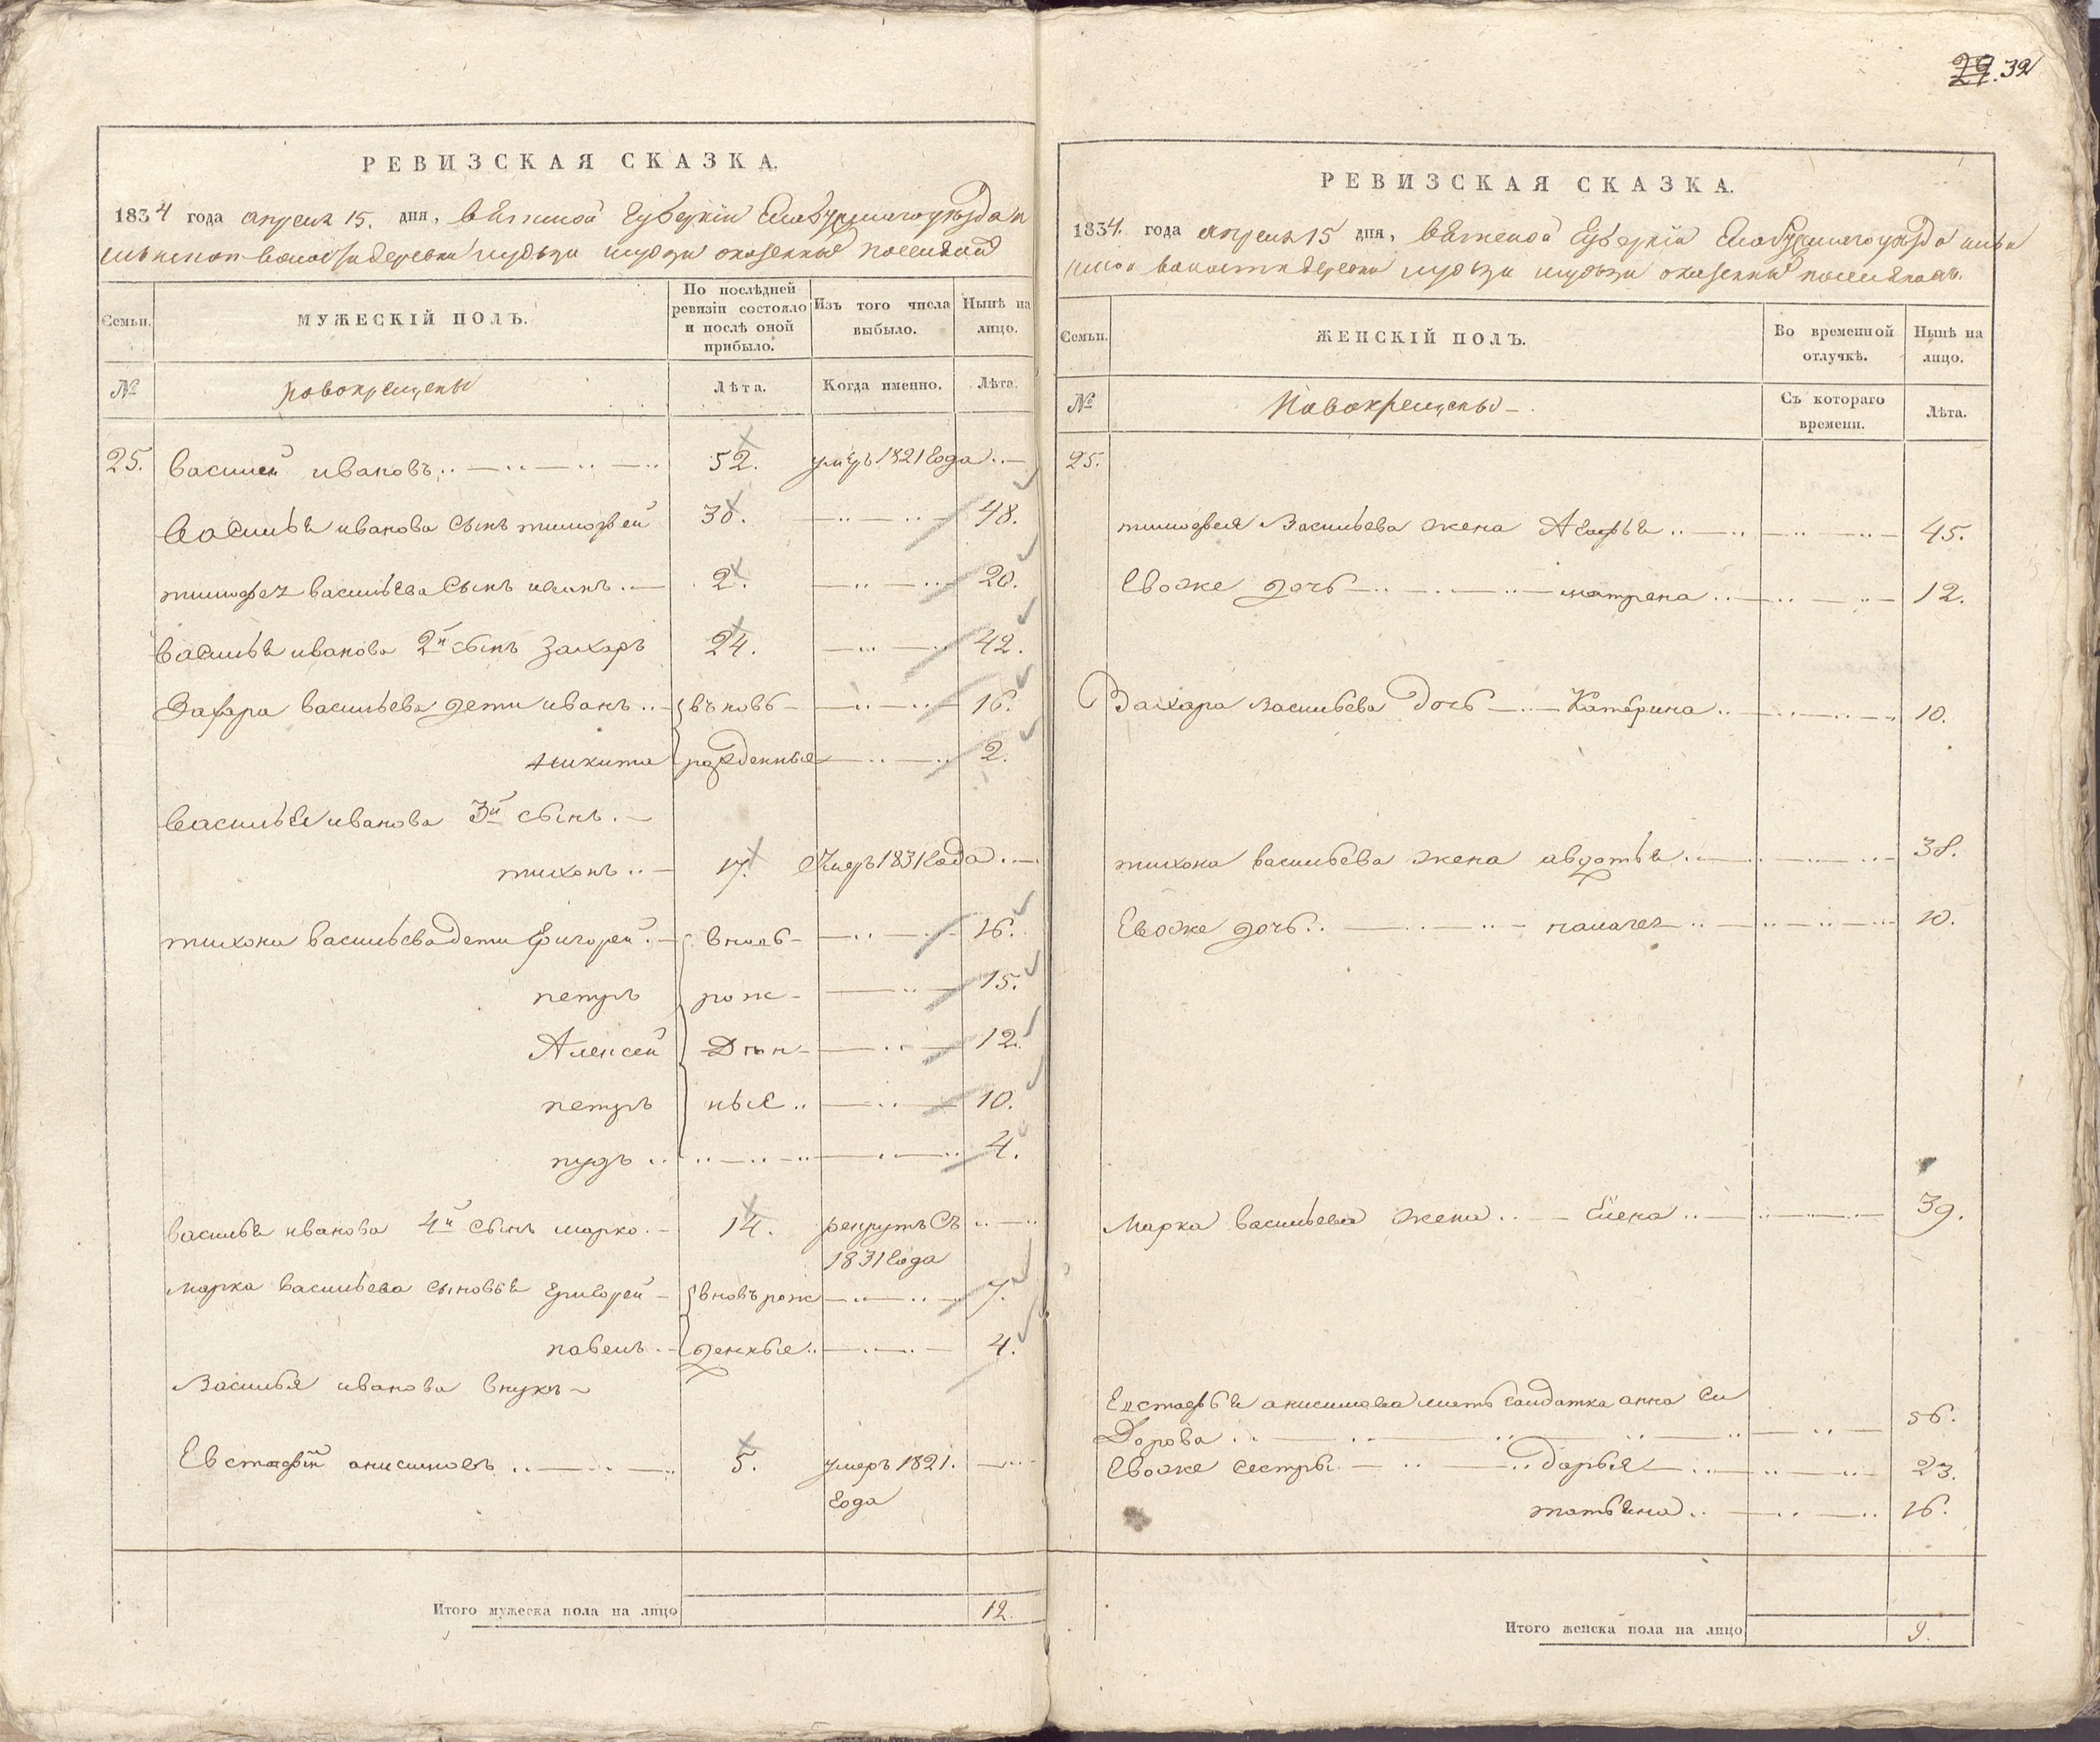 29. 32
РЕВИЗСКАЯ СКАЗКА.
1834 года апреля 15. дня, вятской губернiи Елабужскаго уезда
волости деревни пудзи казенные
Семьи.
МУЖЕСКIЙ ПОЛЪ.
По послѣдней ревизiи состояло и послѣ оной прибыло.
Изъ того числа выбыло.
Нынѣ на лицо.
№
новокрещены
Лѣта.
Когда именно.
Лѣта.
25. василей ивановъ 52. умеръ 1821 года
василья иванова сынъ тимофей 30. 48.
тимофея васильева сынъ 2. 20.
василья иванова 2й сынъ захаръ 24. 42.
Захара васильева дети иванъ вьновь 16.
никита рожденные 2.
василья иванова 3й сынъ
тихонъ 17. Умеръ 1831 года
тихона васильева дети григорей вновь 16.
петръ рож- 15.
Алексей ден- 12.
петръ ные 10.
пудъ 4.
василья иванова 4й сынъ марко 14. рекрутъ съ
1831 года
марка васильева сыновья григорей вновъ рож 7.
павелъ денные 4.
василья иванова внукъ
Евстафiй анисимовъ 5. умеръ 1821.
года
Итого мужеска пола на лицо 12.
РЕВИЗСКАЯ СКАЗКА.
1834. года апреля 15 дня, вятской губернiи Елабужскаго уезда
волости деревни пудзи казенные
Семьи.
ЖЕНСКIЙ ПОЛЪ.
Во временной отлучкѣ.
Нынѣ на лицо.
№
Новокрещены
Съ котораго времени.
Лѣта.
25.
тимофея васильева жена Агафья 45.
Евоже дочь матрена 12.
Захара васильева дочь Катерина 10.
тихона васильева жена авдотья 38.
Евоже дочь 10.
Марка васильева жена Елена 39.
Евстафья анисимова мать салдатка анна си
дорова 56.
Евоже сестры дарья 23.
татьяна 16.
Итого женска пола на лицо 9.